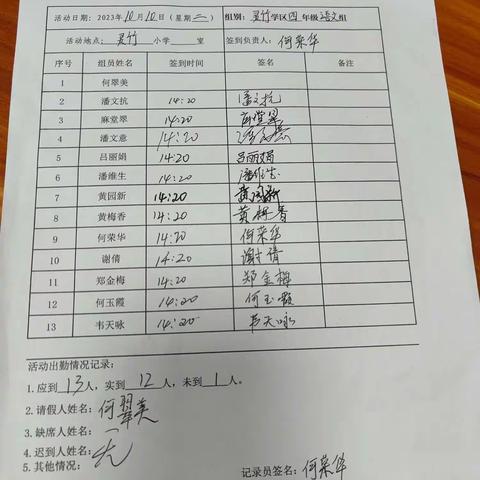 活动日期：2023年10月10日（星期二） 组别：灵竹学区四年级语文组
活动地点：灵竹小学 室 签到负责人：何荣华
序号 组员姓名 签到时间 签名 备注
1 何翠美
2 潘文抗 14:20 潘文抗
3 麻堂翠 14:20 麻堂翠
4 潘文意 14:20 潘文意
5 吕丽娟 14:20 吕丽娟
6 潘维生 14:20 潘维生
7 黄园新 14:20 黄园新
8 黄梅香 14:20 黄梅香
9 何荣华 14:20 何荣华
10 谢倩 14:20 谢倩
11 郑金梅 14:20 郑金梅
12 何玉霞 14:20 何玉霞
13 韦天咏 14:20 韦天咏
活动出勤情况记录：
1.应到13人，实到12人，未到1人。
2.请假人姓名：何翠美
3.缺席人姓名：
4.迟到人姓名：无
5.其他情况：
记录员签名：何荣华